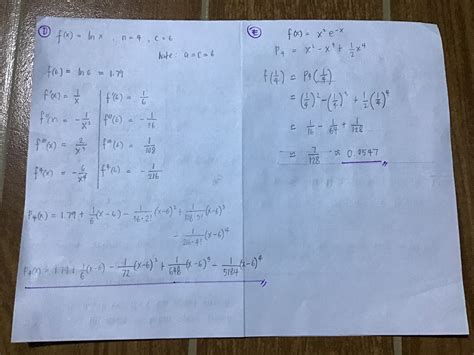 ① f(x) = ln x , n = 4 , c = 6
Note: a = c = 6
f(6) = ln 6 = 1.79
f'(x) = 1/x | f'(6) = 1/6
f''(x) = -1/x² | f''(6) = -1/36
f'''(x) = 2/x³ | f'''(6) = 1/108
f⁴(x) = -6/x⁴ | f⁴(6) = -1/216
P₄(x) = 1.79 + 1/6 (x-6) - 1/36·2! (x-6)² + 1/108·3! (x-6)³
- 1/216·4! (x-6)⁴
P₄(x) = 1.79 + 1/6 (x-6) - 1/72 (x-6)² + 1/648 (x-6)³ - 1/5184 (x-6)⁴
f(x) = x² e^-x
P₄ = x² - x³ + 1/2 x⁴
f(1/4) ≈ P₄(1/4)
= (1/4)² - (1/4)³ + 1/2 (1/4)⁴
= 1/16 - 1/64 + 1/128
= 7/128 ≈ 0.0547